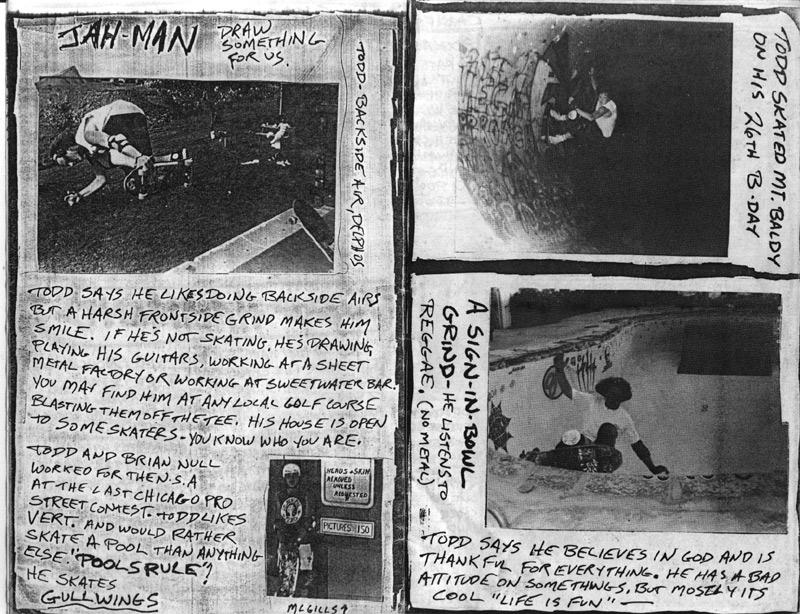 JAH-MAN
DRAW
SOMETHING
FOR US.
TODD-BACKSIDE AIR, DELPHOS
TODD SAYS HE LIKES DOING BACKSIDE AIRS
BUT A HARSH FRONTSIDE GRIND MAKES HIM
SMILE. IF HE'S NOT SKATING, HE'S DRAWING,
PLAYING HIS GUITARS, WORKING AT A SHEET
METAL FACTORY OR WORKING AT SWEETWATER BAR.
YOU MAY FIND HIM AT ANY LOCAL GOLF COURSE
BLASTING THEM OFF THE TEE. HIS HOUSE IS OPEN
TO SOME SKATERS-YOU KNOW WHO YOU ARE.
TODD AND BRIAN NULL
WORKED FOR THE N.S.A
AT THE LAST CHICAGO PRO
STREET CONTEST. TODD LIKES
VERT. AND WOULD RATHER
SKATE A POOL THAN ANYTHING
ELSE. "POOLS RULE"!
HE SKATES
GULLWINGS
HEADS + SKIN
REMOVED
UNLESS
REQUESTED
PICTURES 1.50
MCGILLS
TODD SKATED MT. BALDY
ON HIS 26TH B-DAY
A SIGN-IN-BOWL
GRIND-HE LISTENS TO
REGGAE, (NO METAL)
TODD SAYS HE BELIEVES IN GOD AND IS
THANKFUL FOR EVERYTHING. HE HAS A BAD
ATTITUDE ON SOMETHINGS, BUT MOSTLY ITS
COOL "LIFE IS FUN"